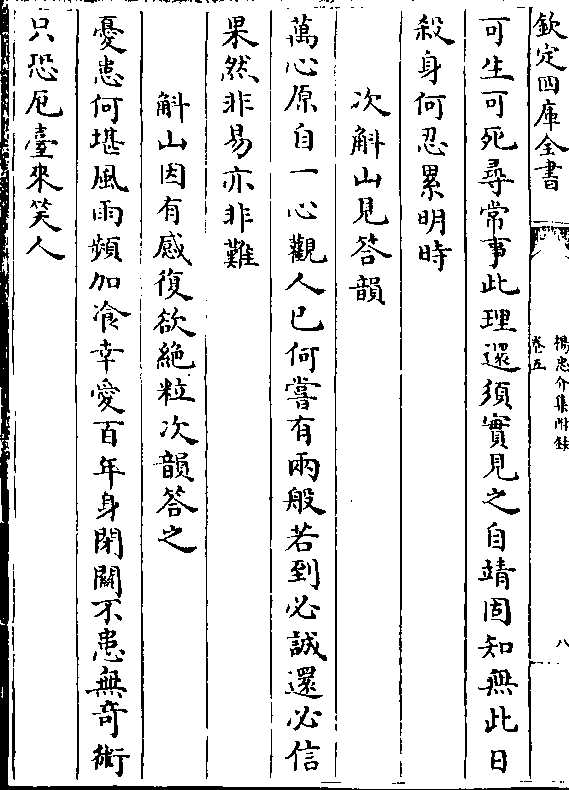 欽定四庫全書
楊忠介集附錄
卷五
八
可生可死尋常事此理還須實見之自靖固知無此日
殺身何忍累明時
次斛山見答韻
萬心原自一心觀人已何嘗有兩般若到必誠還必信
果然非易亦非難
斛山因有感復欲絶粒次韻答之
憂患何堪風雨頻加飡幸愛百年身閉關不患無奇術
只恐厄臺來笑人